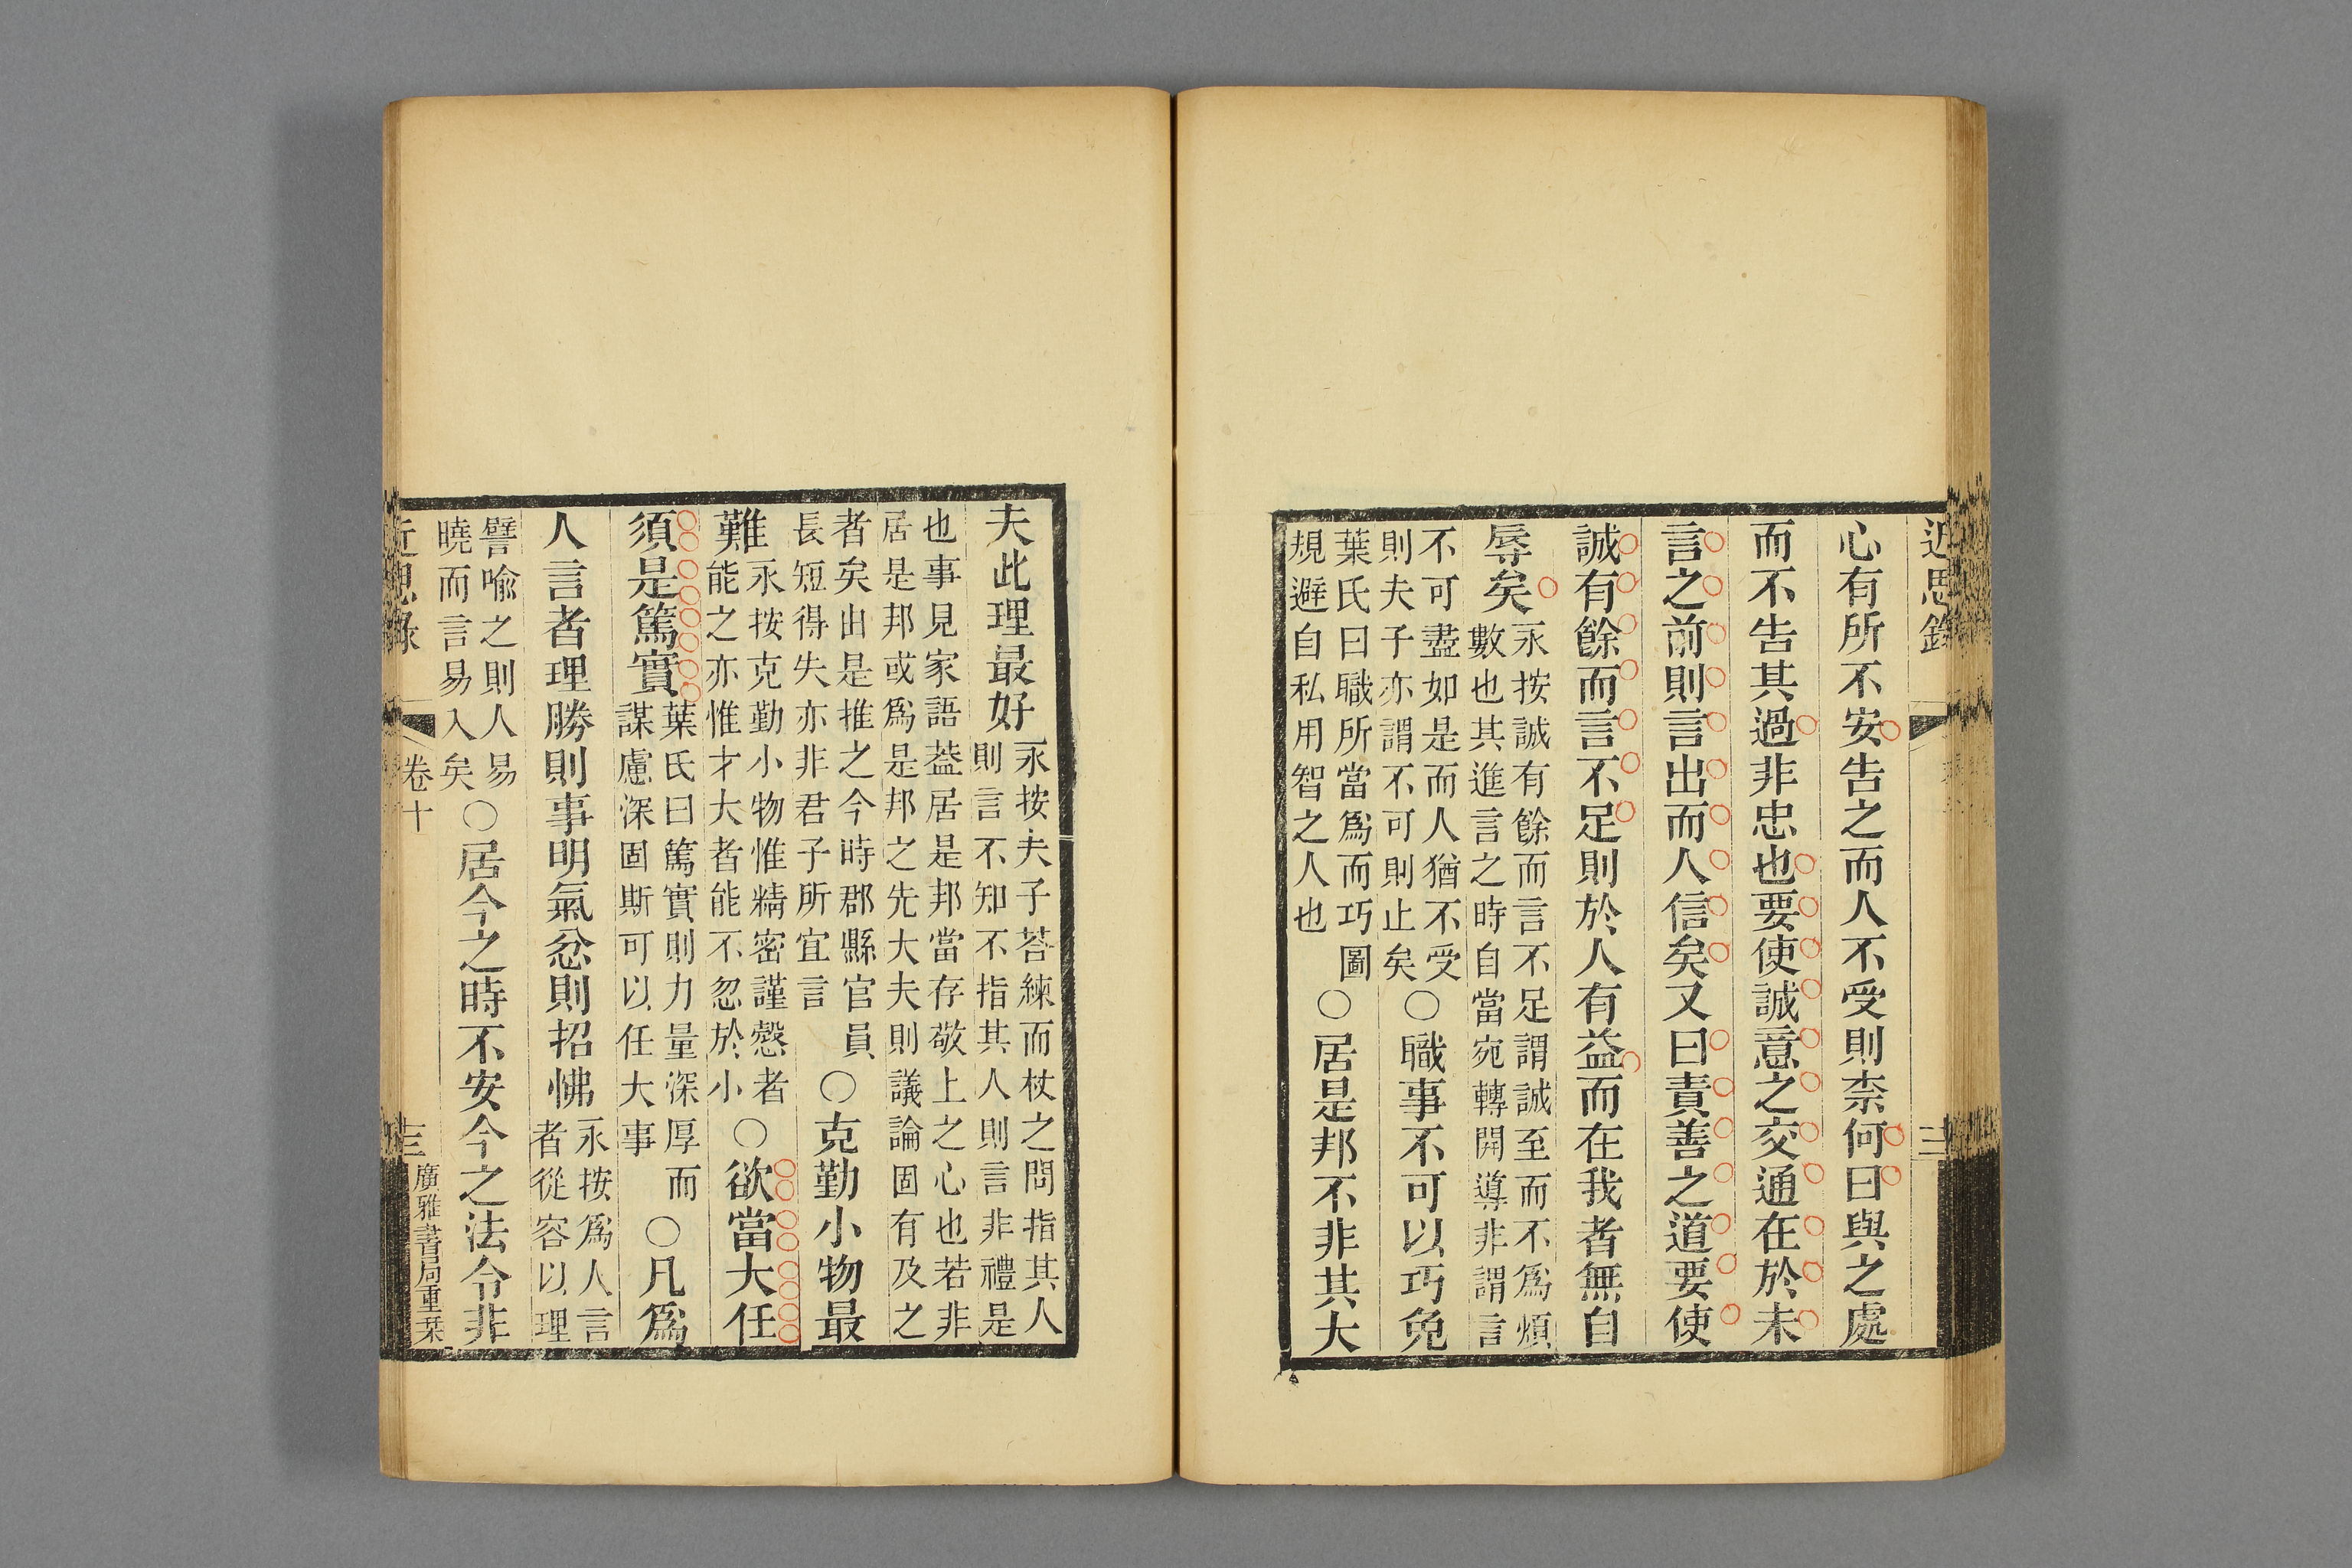 近思錄
心有所不安告之而人不受則柰何曰與之處
而不告其過非忠也要使誠意之交通在於未
言之前則言出而人信矣又曰責善之道要使
誠有餘而言不足則於人有益而在我者無自
辱矣
永按誠有餘而言不足謂誠至而不爲煩
數也其進言之時自當宛轉開導非謂言
不可盡如是而人猶不受
則夫子亦謂不可則止矣
○職事不可以巧免
葉氏曰職所當爲而巧圖
規避自私用智之人也
○居是邦不非其大
夫此理最好
永按夫子荅練而杖之問指其人
則言不知不指其人則言非禮是
也事見家語葢居是邦當存敬上之心也若非
居是邦或爲是邦之先大夫則議論固有及之
者矣由是推之今時郡縣官員
長短得失亦非君子所宜言
○克勤小物最
難
永按克勤小物惟精密謹慤者
能之亦惟才大者能不忽於小
○欲當大任
須是篤實
葉氏曰篤實則力量深厚而
謀慮深固斯可以任大事
○凡爲
人言者理勝則事明氣忿則招怫
永按爲人言
者從容以理
譬喻之則人易
曉而言易入矣
○居今之時不安今之法令非
近思錄
卷十
三
廣雅書局重栞